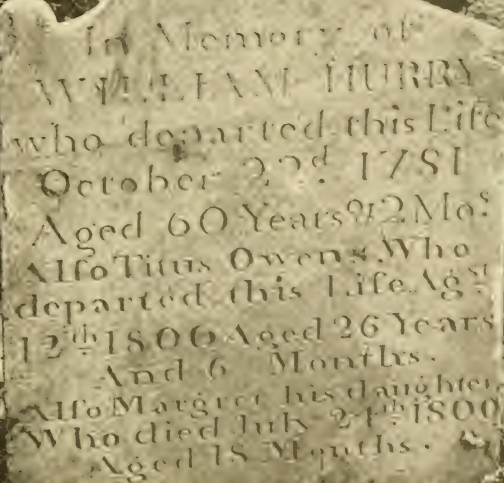 In Memory of
WILLIAM HURRY
who departed this Life
October 22d. 1781
Aged 60 Years & 2 Mos.
Also Titus Owens, Who
departed this Life Agst
12th 1806 Aged 26 Years
And 6 Months.
Also Margret his daughter
Who died July 24th 1800
Aged 18 Months.